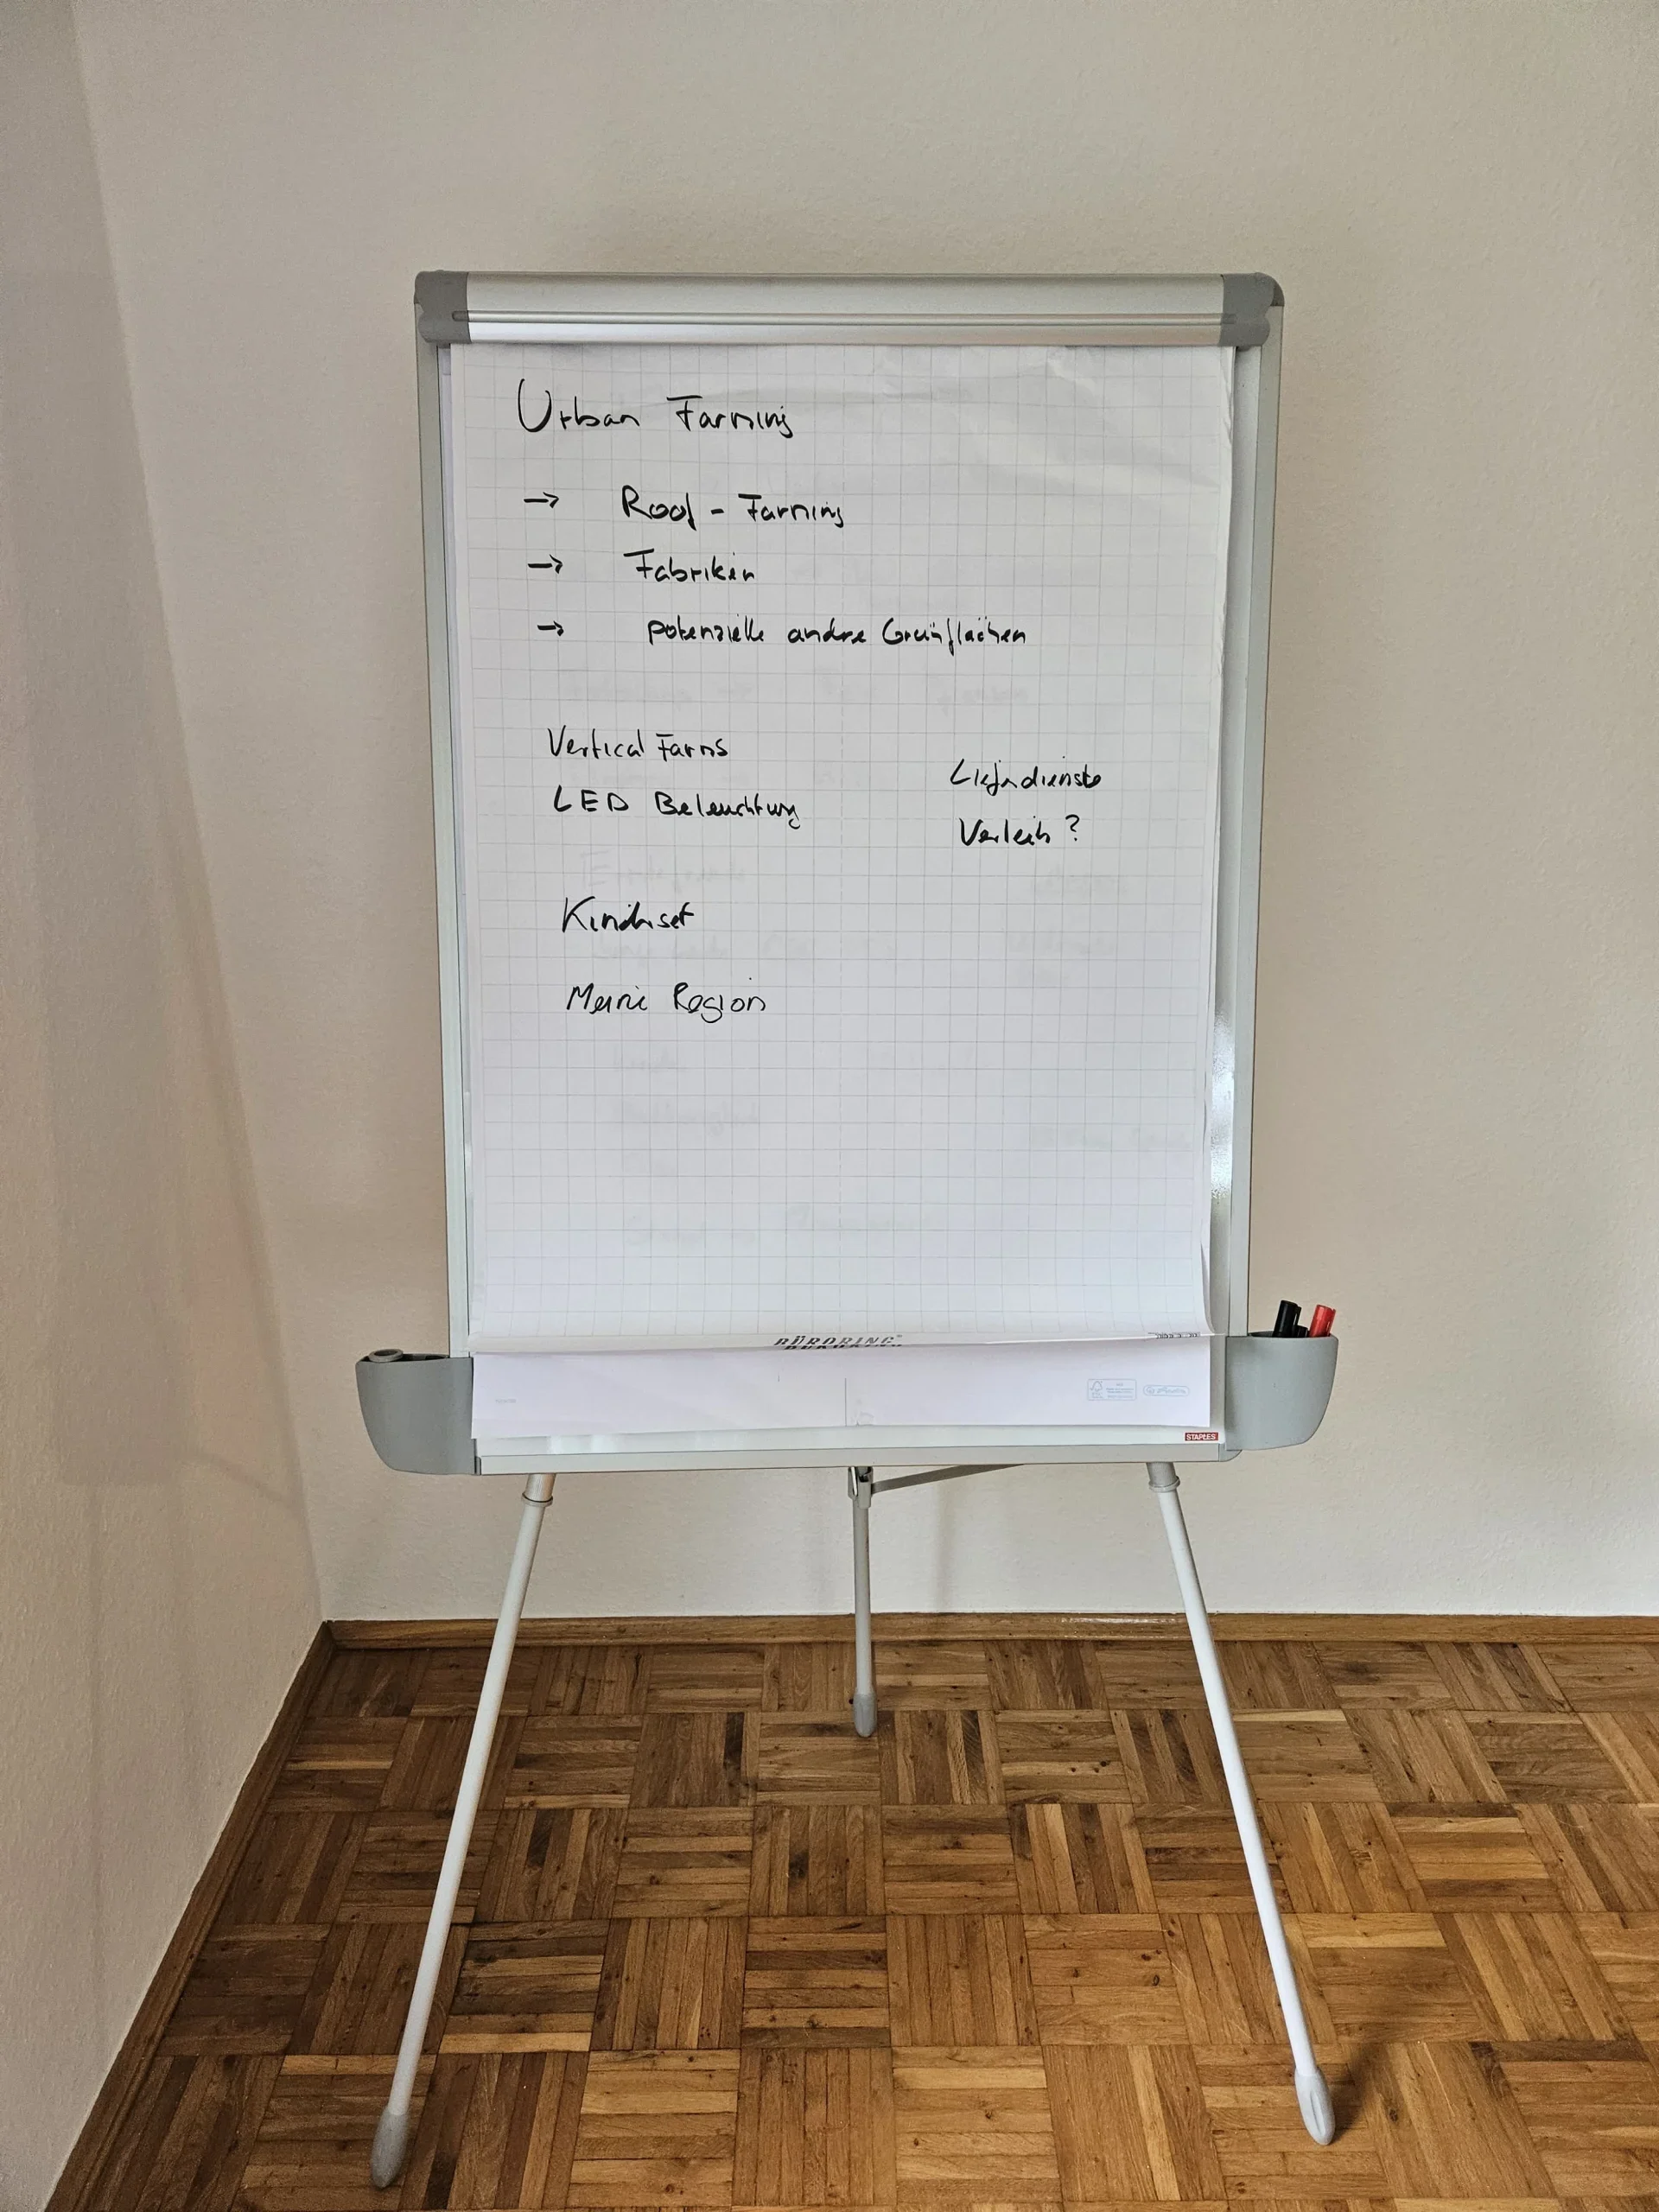 Urban Farming
→ Roof - Farming
→ Fabriken
→ potenzielle andre Grünflächen
Vertical Farms
LED Beleuchtung
Lieferdienste
Verleih?
Kinderset
Meine Region
BÜRORING
STAPLES